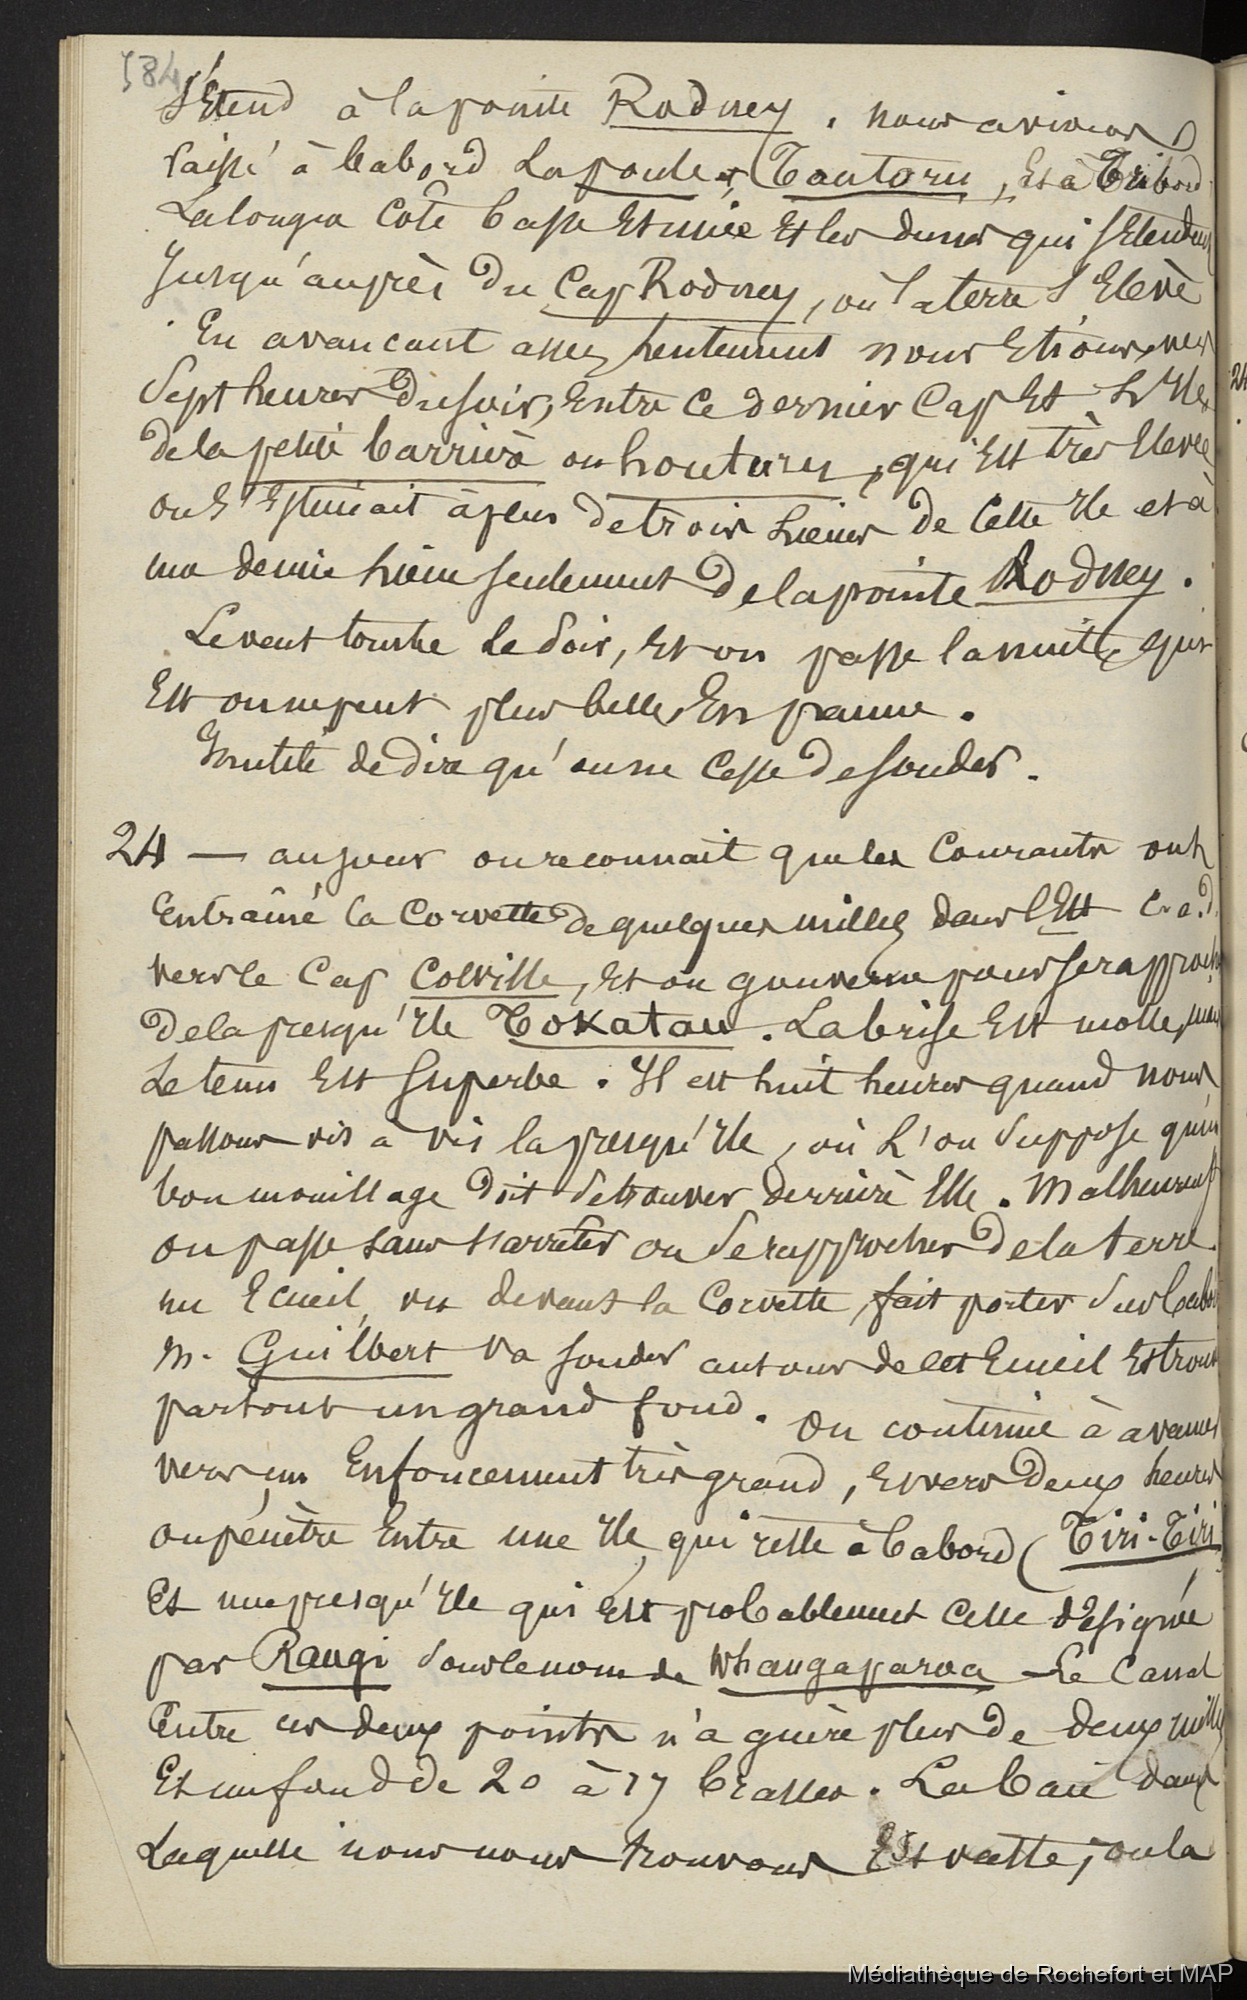 584
s'Etend à la pointe Rodney. nous avions
laissé à babord la poule, Tautoru, Et à Tribord
La longue Cote basse Et unie Et les dunes qui s'Etendent
Jusqu'auprès du Cap Rodney, où la terre s'Elevè
En avancant assez lentement nous Etions, vers
Sept heures du soir, Entre ce dernier Cap Et L'Ile
de la petite barrière ou houtury, qui Est très Elevée
on s'Estimait à plus de trois Lieues de Cette Ile et à
une demie lieue seulement de la pointe Rodney.
Le vent tombe le soir, Et on passe la nuit, qui
Est on ne peut plus belle, En panne.
Inutile de dire qu'on ne Cesse de sonder.
24 — au jour on reconnait que les Courants ont
Entrainé la Corvette de quelques milles dans l'Est C.a.d.
vers le Cap Colville, Et on gouverne pour se rapprocher
de la presqu'Ile Tokatau. La brise Est molle, mais
Le tems Est superbe. Il est huit heures quand nous
passons vis à vis la presqu'Ile, où L'on suppose qu'un
bon mouillage doit se trouver derrière Elle. Malheureust
on passe sans s'arrêter ou se rapprocher de la terre.
un Ecueil, vu devant la Corvette, fait porter sur babord
M. Guilbert va sonder autour de cet Ecueil Et trouve
partout un grand fond. On continue à avancer
vers un Enfoncement très grand, Et vers deux heures
on pénètre Entre une Ile, qui reste à babord (Tiri-Tiri)
Et une presqu'Ile qui Est probablement Celle désignée
par Rangi sous le nom de Whangaparoa - Le Canal
Entre ces deux points n'a guère plus de deux milles
Et un fond de 20 à 17 brasses. La baie dans
Laquelle nous nous trouvons Est vaste, on la
Médiathèque de Rochefort et MAP